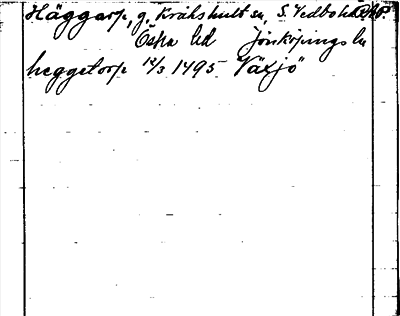 Häggarp, g. Kråkshult sn, S. Vedbo hd
Östra hd Jönköpings ln
heggetorp 12/3 1495 Växjö